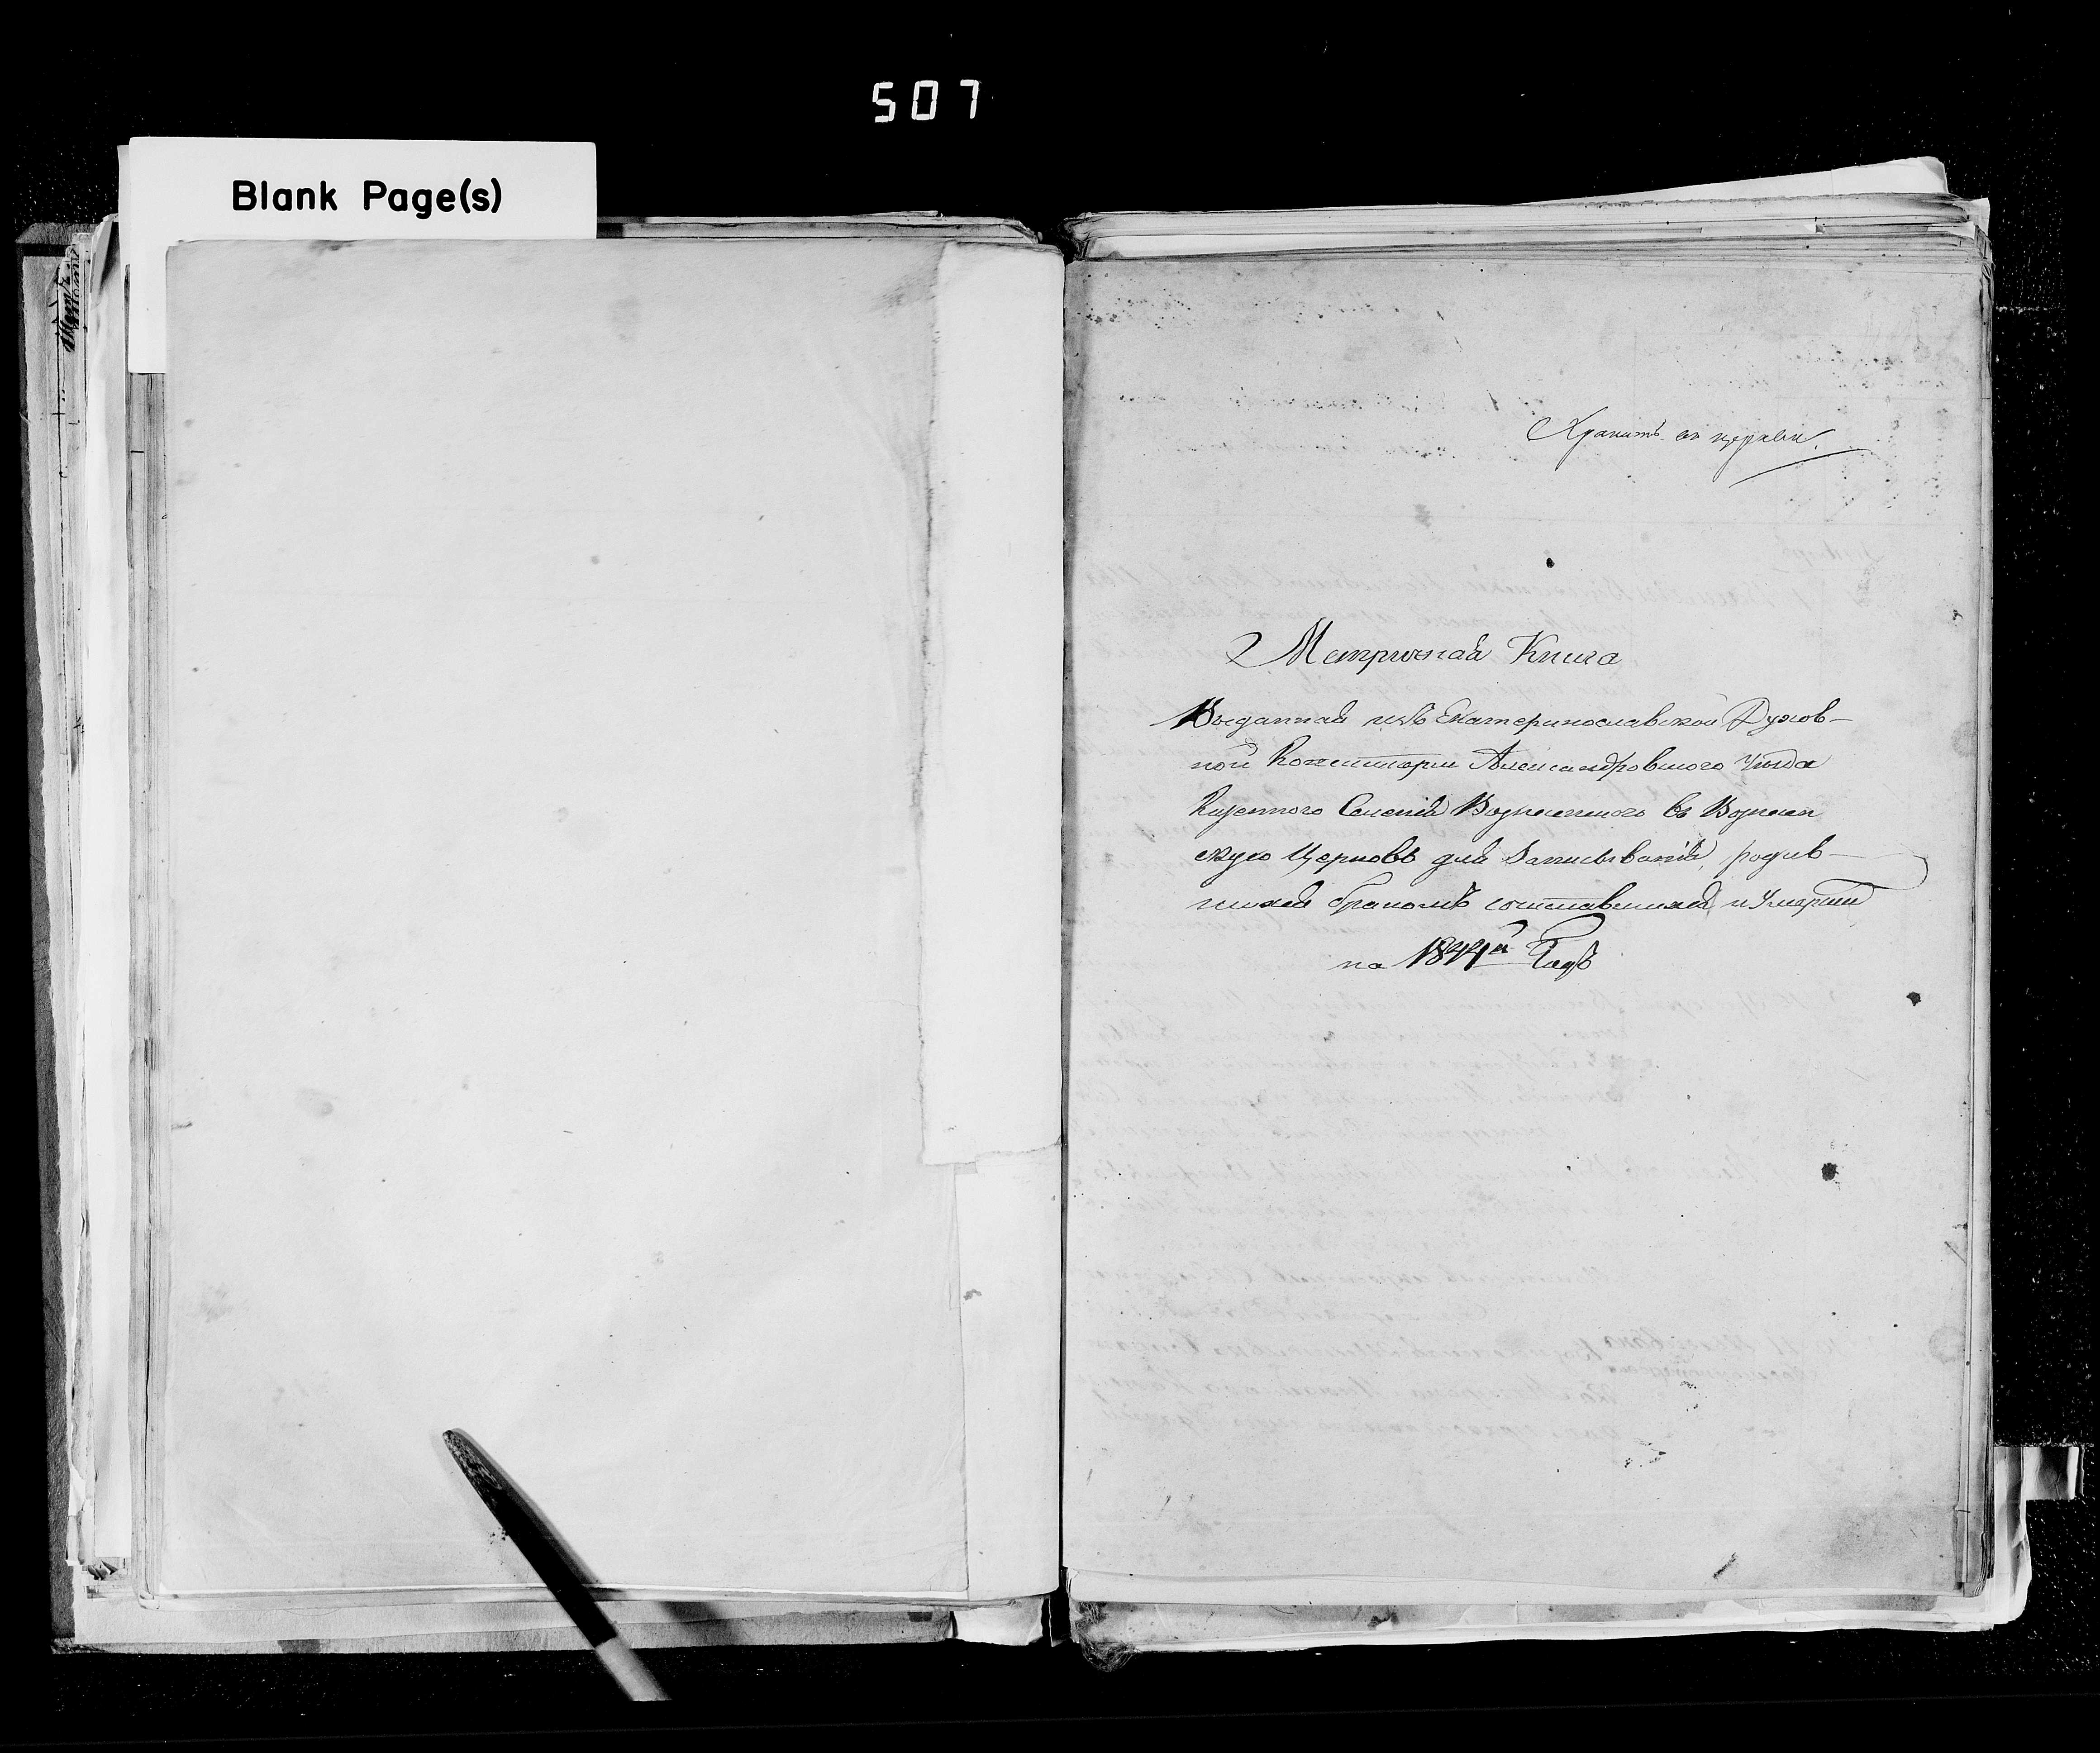 507
Blank Page(s)
Хранить въ церкви.
Метричная Книга
Выданная изъ Екатеринославской Духов-
ной Консисторіи Александровского Уѣзда
Казенного Селенія Вознесенского въ Вознесен
скую Церковь для Записыванія, родив-
шихся бракомъ сочетавшихся и Умершихъ
на 1844й Годъ